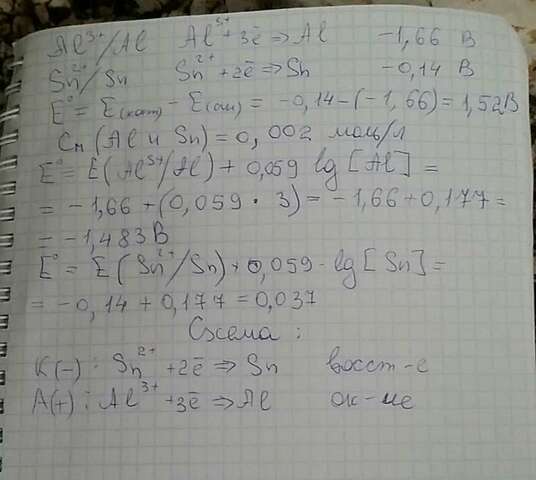 Al³⁺/Al Al³⁺+3ē ⇒ Al -1,66 В
Sn²⁺/Sn Sn²⁺+2ē ⇒ Sn -0,14 В
E° = E(кат) - E(ан) = -0,14-(-1,66) = 1,52В
Cм (Al и Sn) = 0,002 моль/л
E° = E(Al³⁺/Al) + 0,059 lg [Al] =
= -1,66 + (0,059 · 3) = -1,66 + 0,177 =
= -1,483 В
E° = E (Sn²⁺/Sn) + 0,059 · lg [Sn] =
= -0,14 + 0,177 = 0,037
Схема :
К(-) : Sn²⁺ +2ē ⇒ Sn восст-е
А(+) : Al³⁺ +3ē ⇒ Al ок-ие